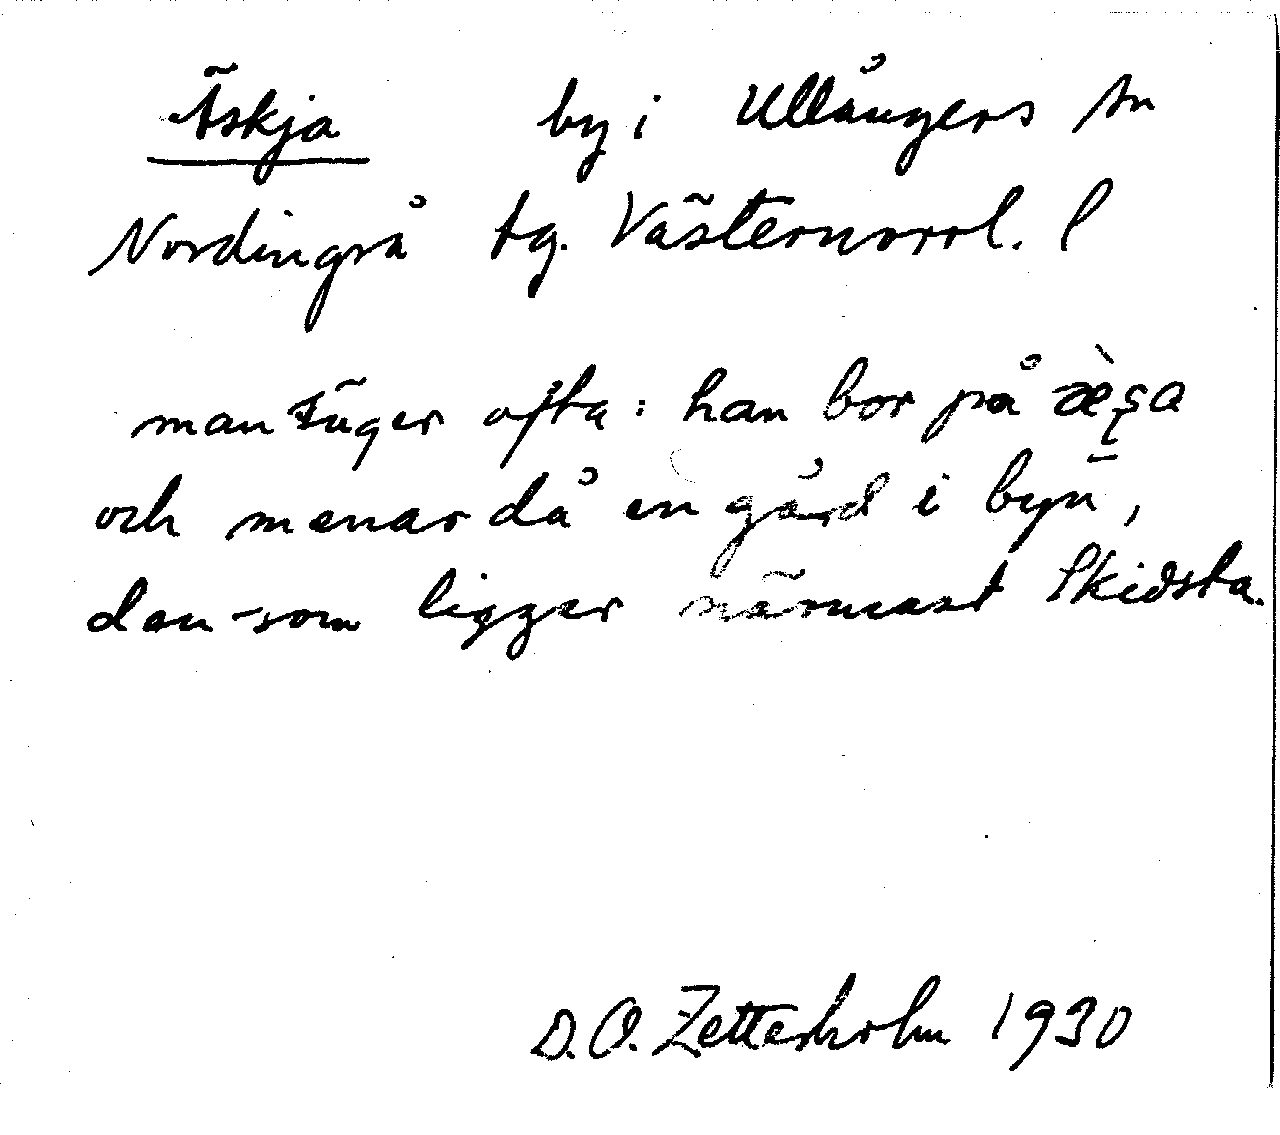 Äskja by i Ullångers sn
Nordingrå tg. Västernorrl. l
man säger ofta: han bor på æ̀ʂa
och menar då en gård i byn,
den som ligger närmast Skidsta.
D.O. Zetterholm 1930